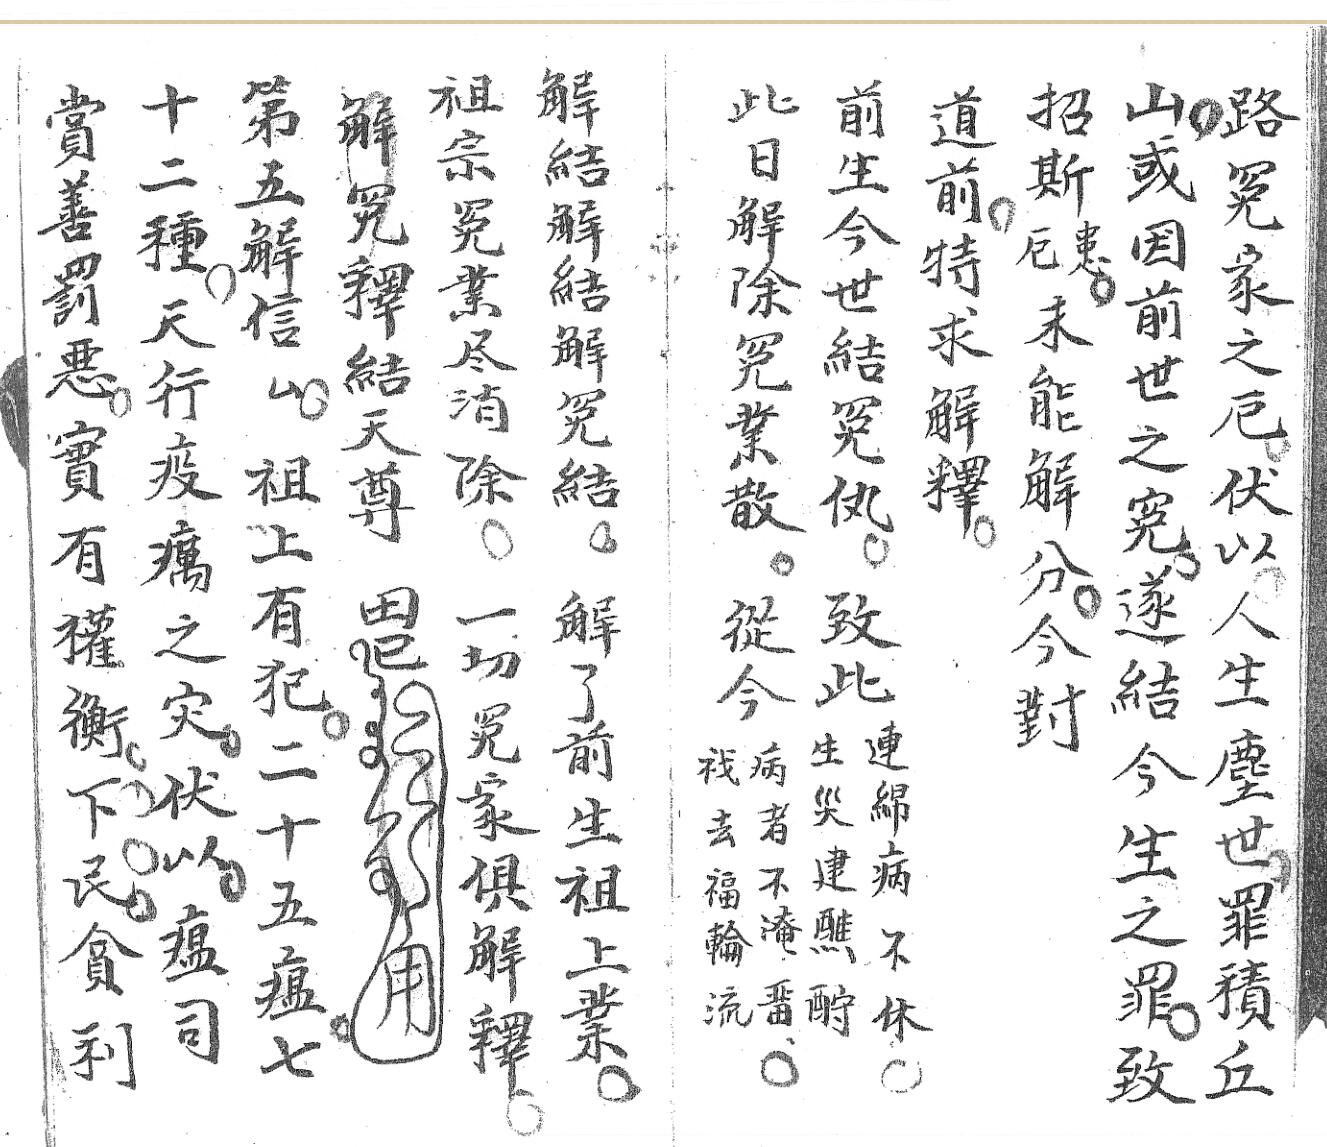 路冤家之厄伏以人生塵世罪積丘
山或因前世之冤遂結今生之罪致
招斯厄患未能解分今對
道前特求解釋
前生今世結冤仇致此連綿病不休
生災建醮酧
此日解除冤業散從今病者不淹畱
祛去福輪流
解結解結解冤結解了前生祖上業
祖宗冤業尽消除一切冤家俱解釋
解冤釋結天尊
第五解信山祖上有犯二十五瘟七
十二種天行疫癘之灾伏以瘟司
賞善罰惡實有權衡下民貪利